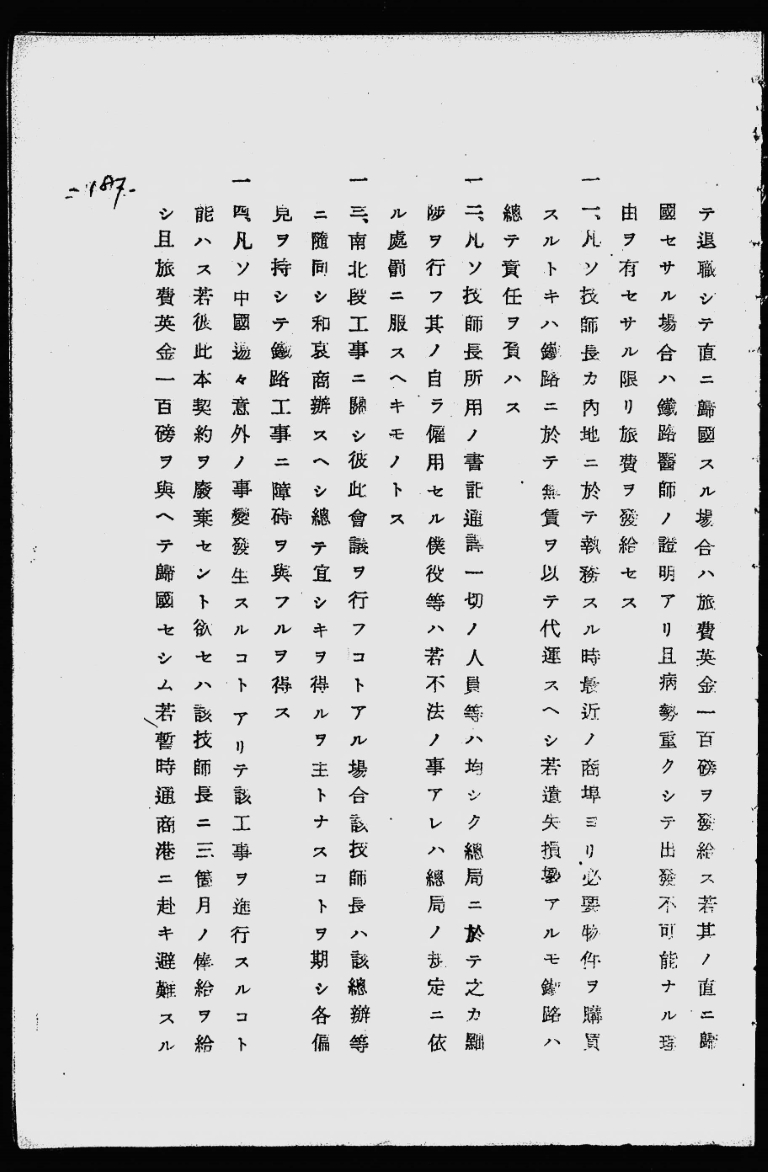 テ退職シテ直ニ歸國スル場合ハ旅費英金一百磅ヲ發給ス若其ノ直ニ歸
國セサル場合ハ鐵路醫師ノ證明アリ且病勢重クシテ出發不可能ナル理
由ヲ有セサル限リ旅費ヲ發給セス
一一、凡ソ技師長カ內地ニ於テ執務スル時最近ノ商埠ヨリ必要物件ヲ購買
スルトキハ鐵路ニ於テ無賃ヲ以テ代運スヘシ若遺失損壞アルモ鐵路ハ
總テ責任ヲ負ハス
一二、凡ソ技師長所用ノ書記通譯一切ノ人員等ハ均シク總局ニ於テ之カ
涉ヲ行フ其ノ自ラ僱用セル僕役等ハ若不法ノ事アレハ總局ノ規定ニ依
ル處罰ニ服スヘキモノトス
一三、南北段工事ニ關シ彼此會議ヲ行フコトアル場合該技師長ハ該總辦等
ニ隨同シ和衷商辦スヘシ總テ宜シキヲ得ルヲ主トナスコトヲ期シ各偏
見ヲ持シテ鐵路工事ニ障碍ヲ與フルヲ得ス
一四、凡ソ中國邊々意外ノ事變發生スルコトアリテ該工事ヲ進行スルコト
能ハス若彼此本契約ヲ廢棄セント欲セハ該技師長ニ三箇月ノ俸給ヲ給
シ且旅費英金一百磅ヲ與ヘテ歸國セシム若暫時通商港ニ赴キ避難スル
-187-